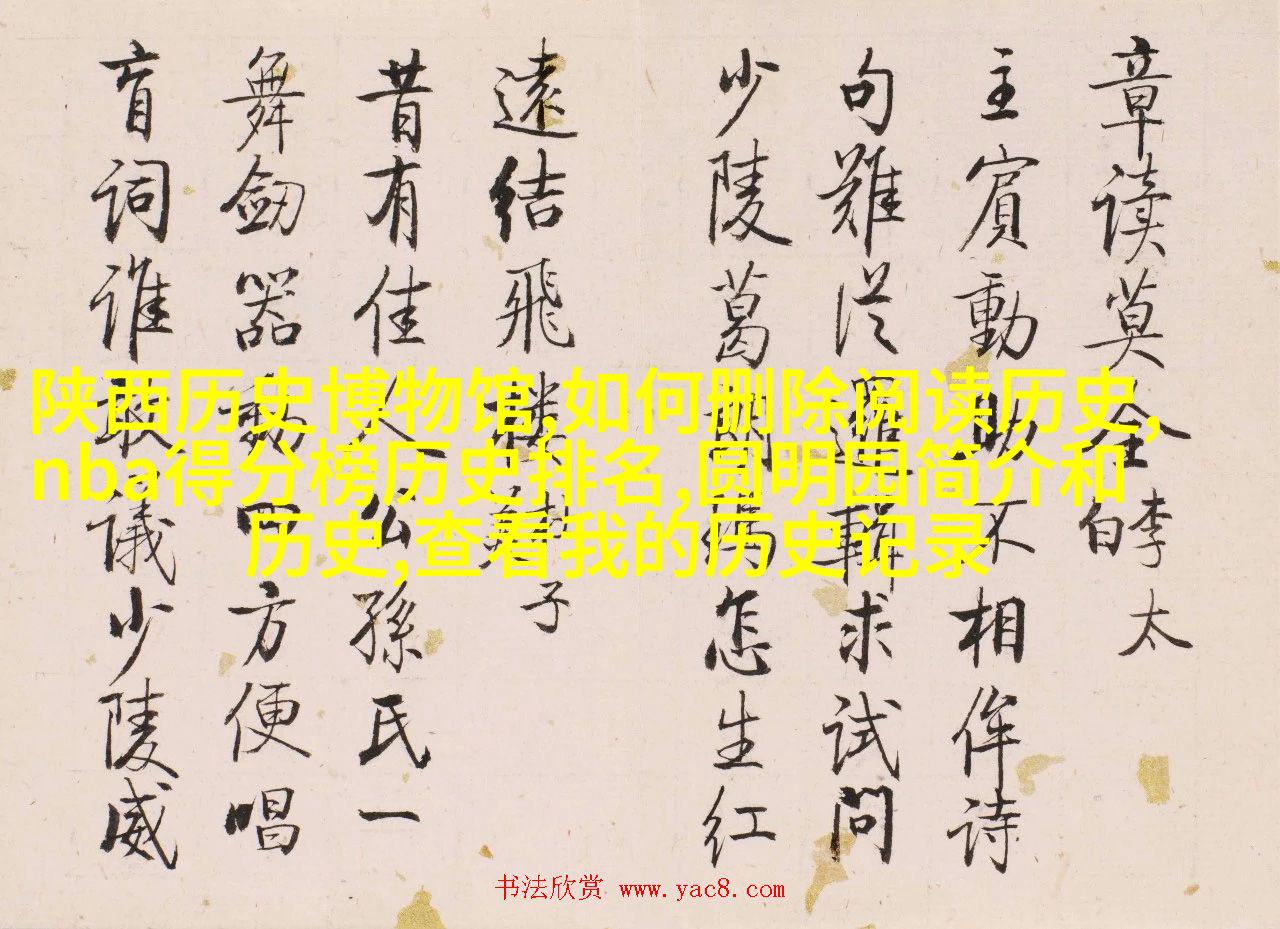 章读莫全李太白
主賓動不相侔诗
句難從求试問
少陵葛怎生红
遠结飛子
昔有佳人公孫氏一
舞劒器動四方便唱
盲词谁敢議少陵威
陕西历史博物馆,如何删除阅读历史,
nba得分榜历史排名,圆明园简介和
历史,查看我的历史记录
书法欣赏 www.yac8.com